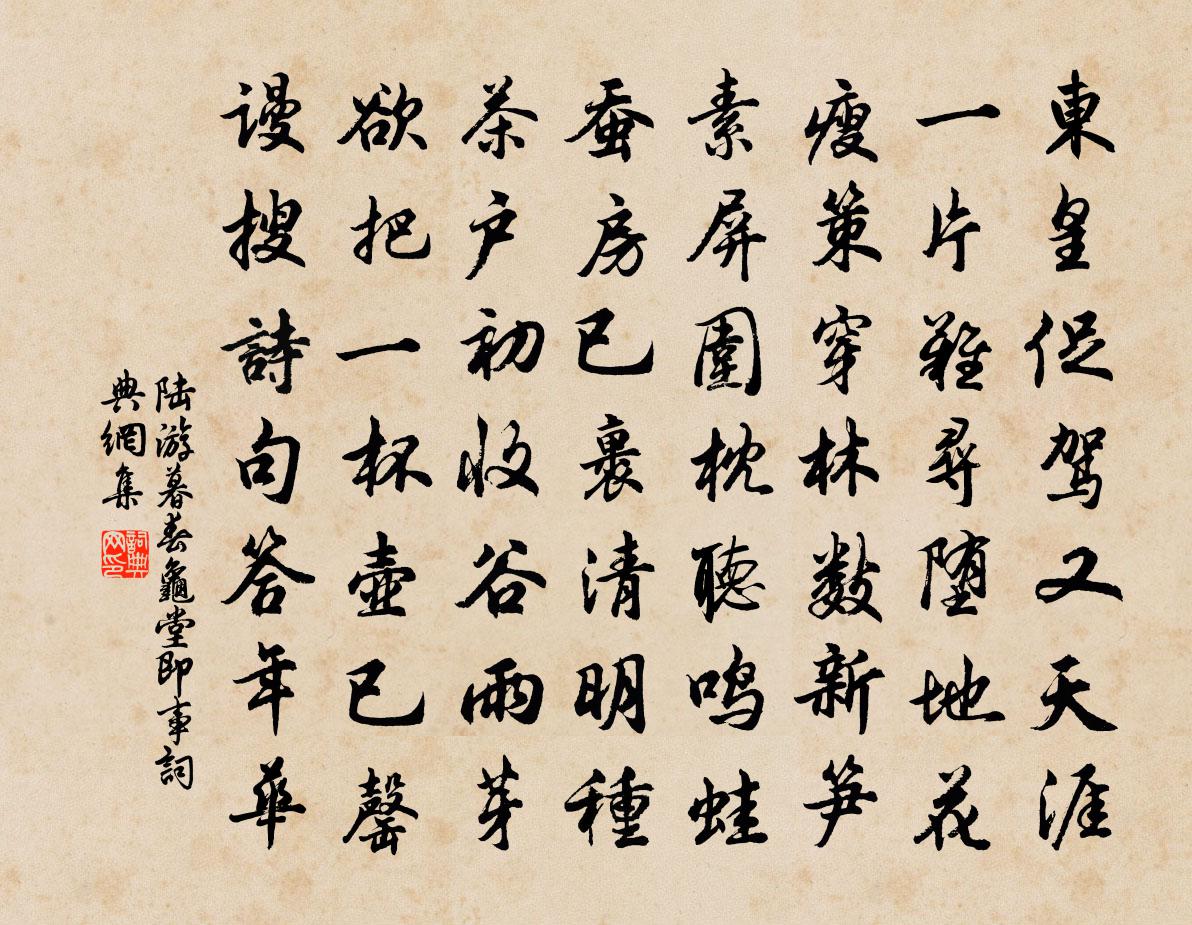 東皇促駕又天涯
一片難尋堕地花
瘦策穿林數新笋
素屏圍枕聽鳴蛙
蚕房已裹清明種
茶户初收谷雨芽
欲把一杯壺已罄
謾搜詩句答年華
陆游暮春龜堂即事詞
典網集
詞典
网印